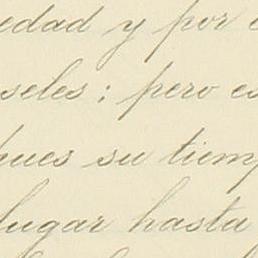 edad y por e
seles; pero es
ques su tiemp
lugar hasta